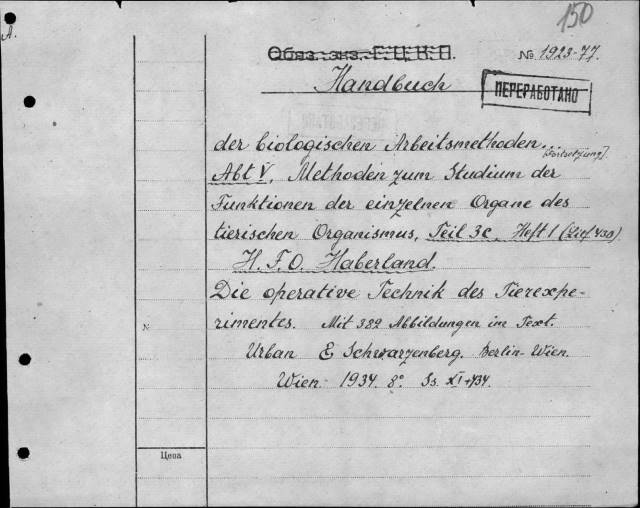 150
A.
Обяз. экз. Г.Ц.К.П.
№ 1923-77.
Handbuch
ПЕРЕРАБОТАНО
der biologischen Arbeitsmethoden...
[Fortsetzung].
Abt V, Methoden zum Studium der
Funktionen der einzelnen Organe des
tierischen Organismus, Teil 3c, Heft 1 (Lief. 430)
H. F. O. Haberland.
Die operative Technik des Tierexpe-
rimentes. Mit 382 Abbildungen im Text.
N
Urban & Schwarzenberg. Berlin-Wien.
Wien 1934. 8° Ss. XI+434.
Цена